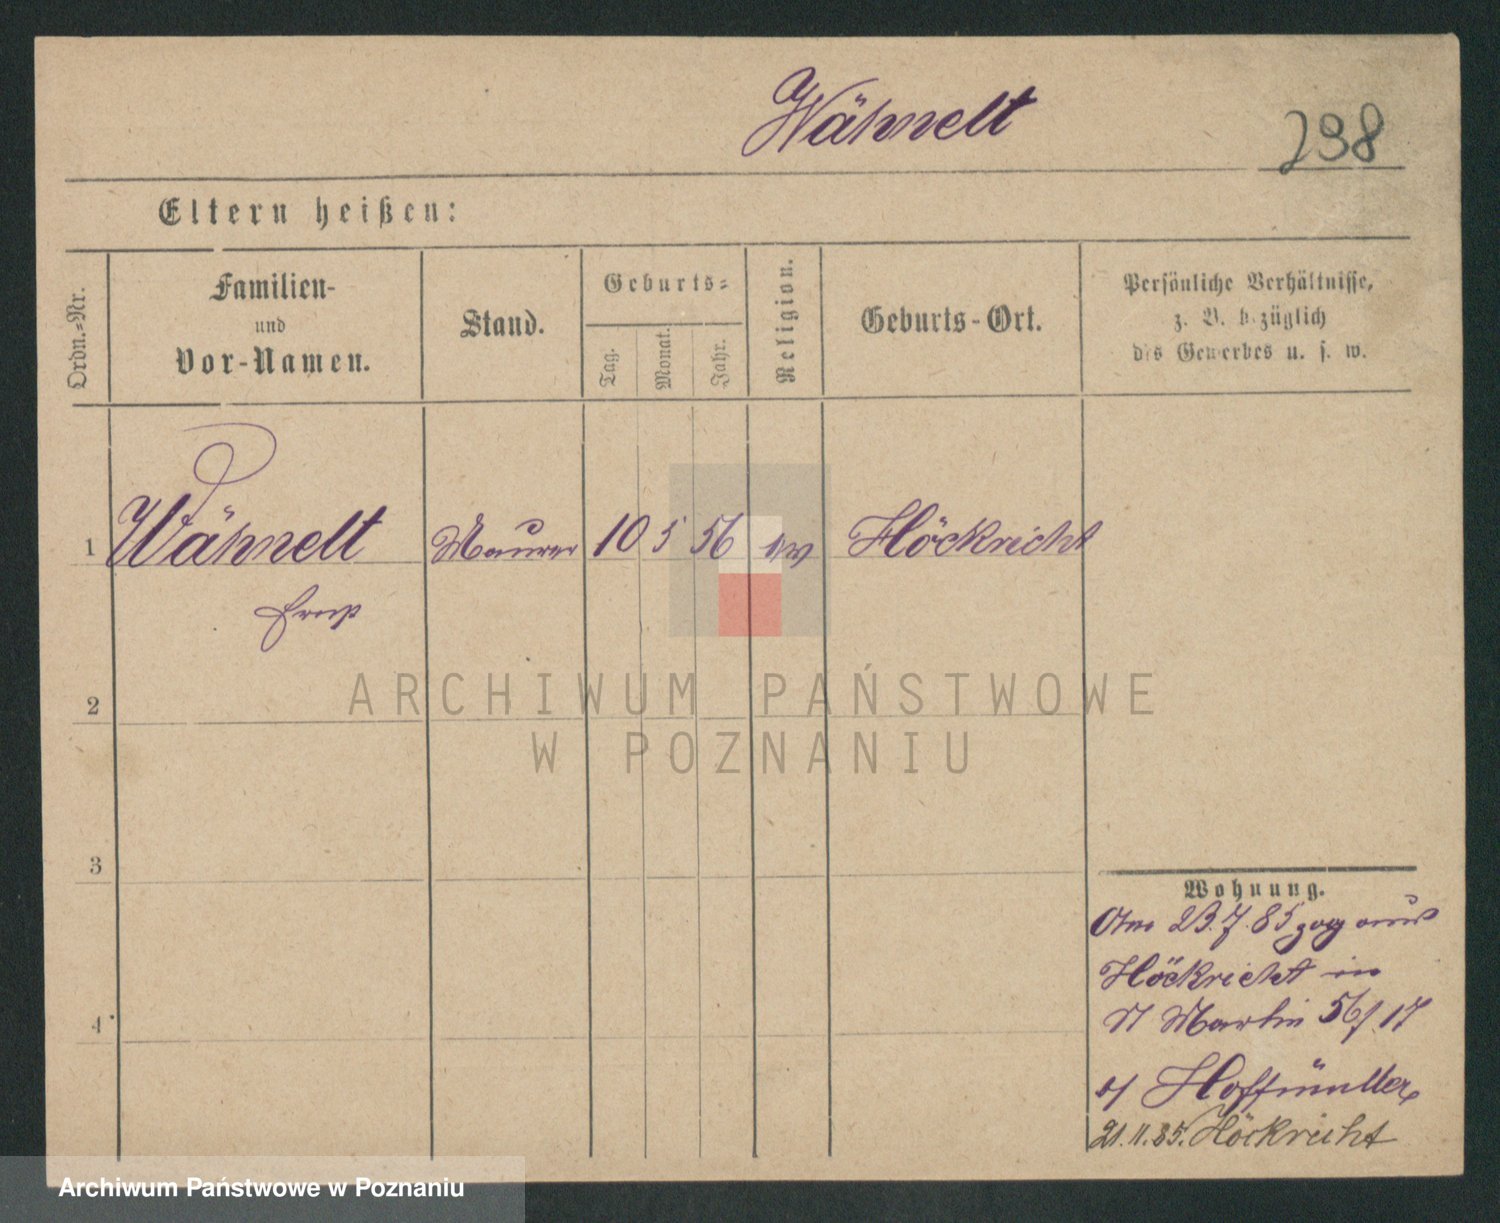 Wähnelt
298
Eltern heißen:
Ordn.-Nr.
Familien-
und
Vor-Namen.
Stand.
Geburts-
Tag.
Monat.
Jahr.
Religion.
Geburts-Ort.
Persönliche Verhältnisse,
z. B. bezüglich
des Gewerbes u. s. w.
1 Wähnelt Maurer 10 5 56 ev Höckricht
Ernst
2
3
4
Wohnung.
Am 23.7.85 zog aus
Höckricht in
St Martin 56/17
b/ Hoffmüller
21.11.85. Höckricht
ARCHIWUM PAŃSTWOWE
W POZNANIU
Archiwum Państwowe w Poznaniu